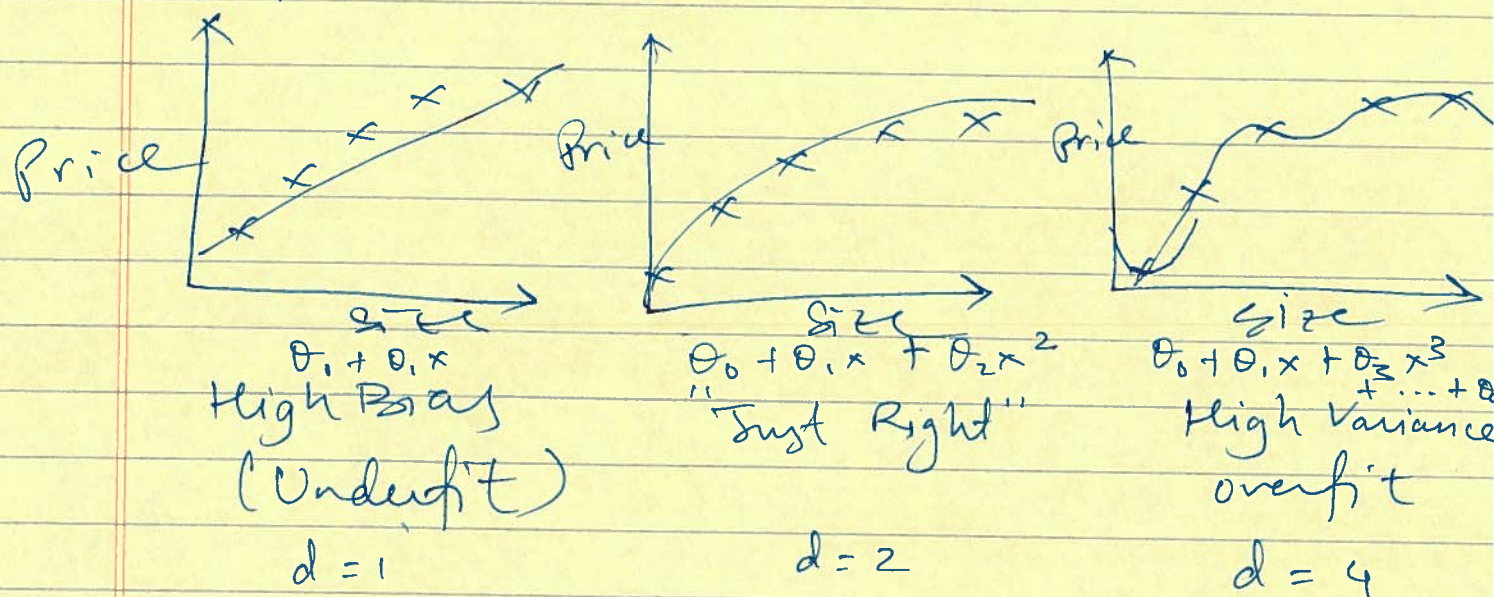 Price
Size
θ₀ + θ₁x
High Bias
(Underfit)
d = 1
Price
Size
θ₀ + θ₁x + θ₂x²
"Just Right"
d = 2
Price
Size
θ₀ + θ₁x + θ₃x³
+ ... + θ
High Variance
overfit
d = 4